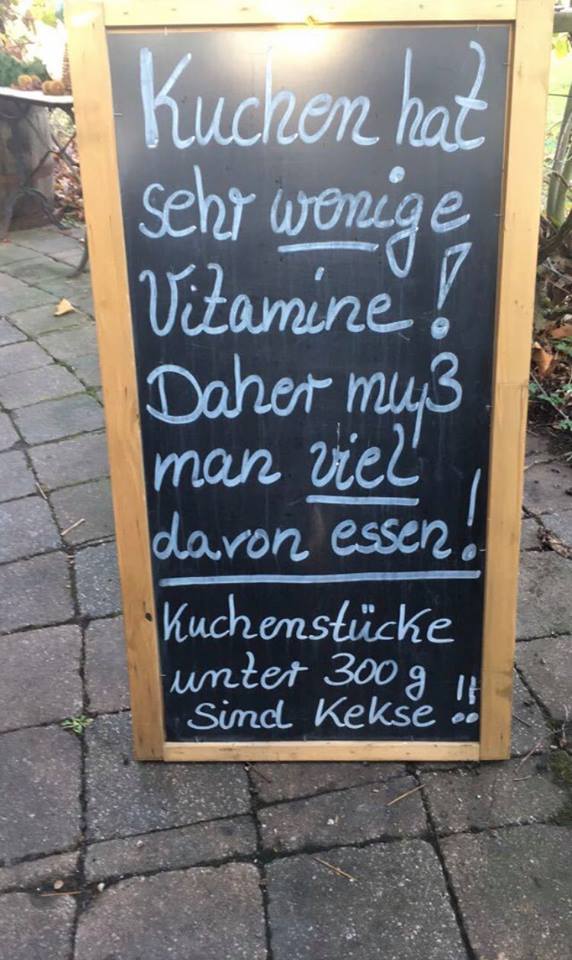 Kuchen hat
sehr wenige
Vitamine!
Daher muß
man viel
davon essen!
Kuchenstücke
unter 300 g
sind Kekse!!